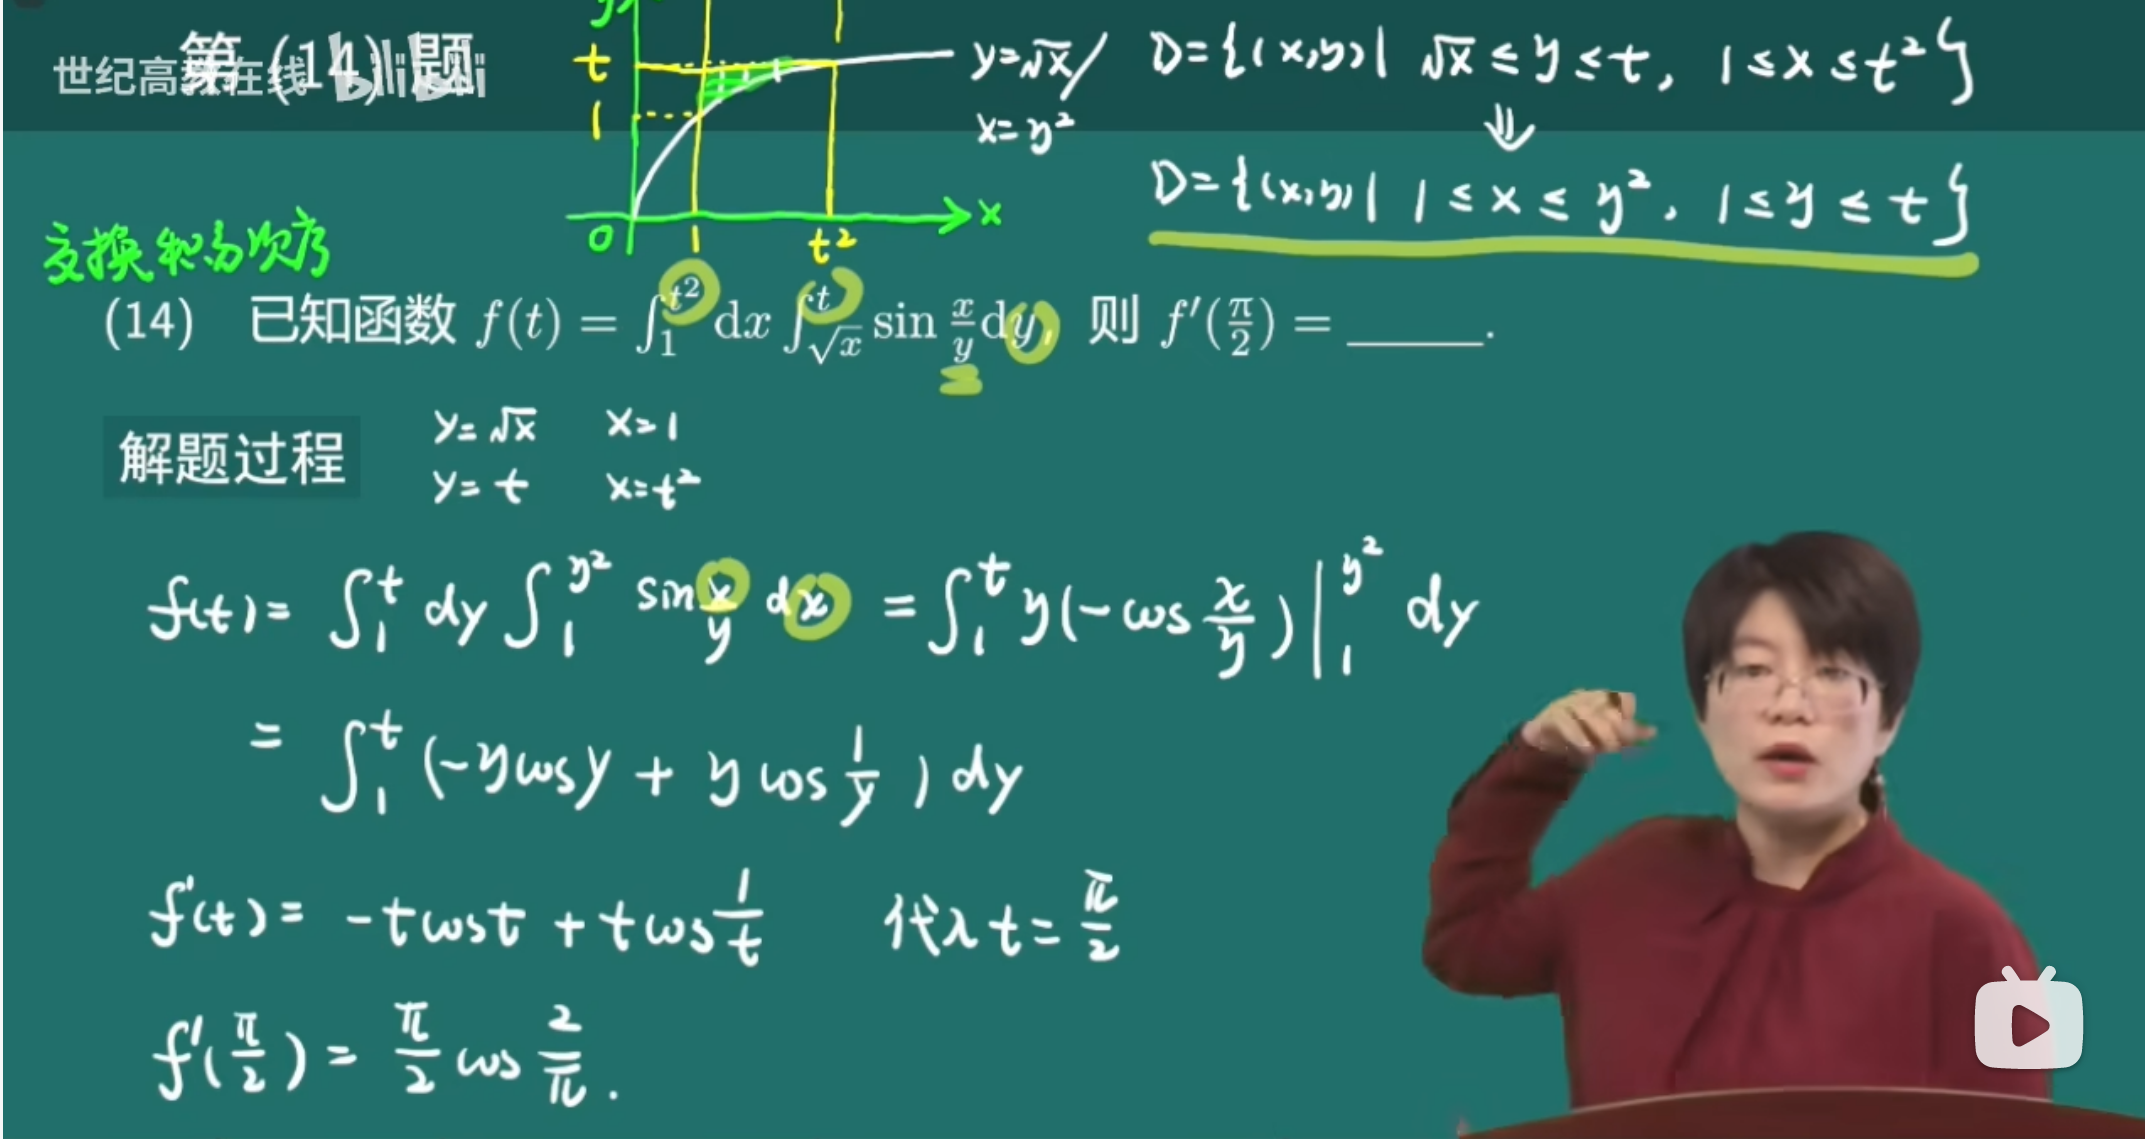 第(14)题
世纪高数在线 bilibili
y
t
1
0
1
t²
x
y=√x
x=y²
D={(x,y)| √x≤y≤t, 1≤x≤t²}
⇓
D={(x,y)| 1≤x≤y², 1≤y≤t}
交换积分次序
(14) 已知函数 f(t) = ∫₁^{t²} dx ∫_{√x}^{t} sin x/y dy, 则 f′(π/2) = ______.
解题过程
y=√x x=1
y=t x=t²
f(t)= ∫₁^t dy ∫₁^{y²} sin x/y dx = ∫₁^t y(-cos x/y)|₁^{y²} dy
= ∫₁^t (-ycosy + y cos 1/y) dy
f′(t)= -tcost + tcos 1/t 代入 t= π/2
f′(π/2)= π/2 cos 2/π.